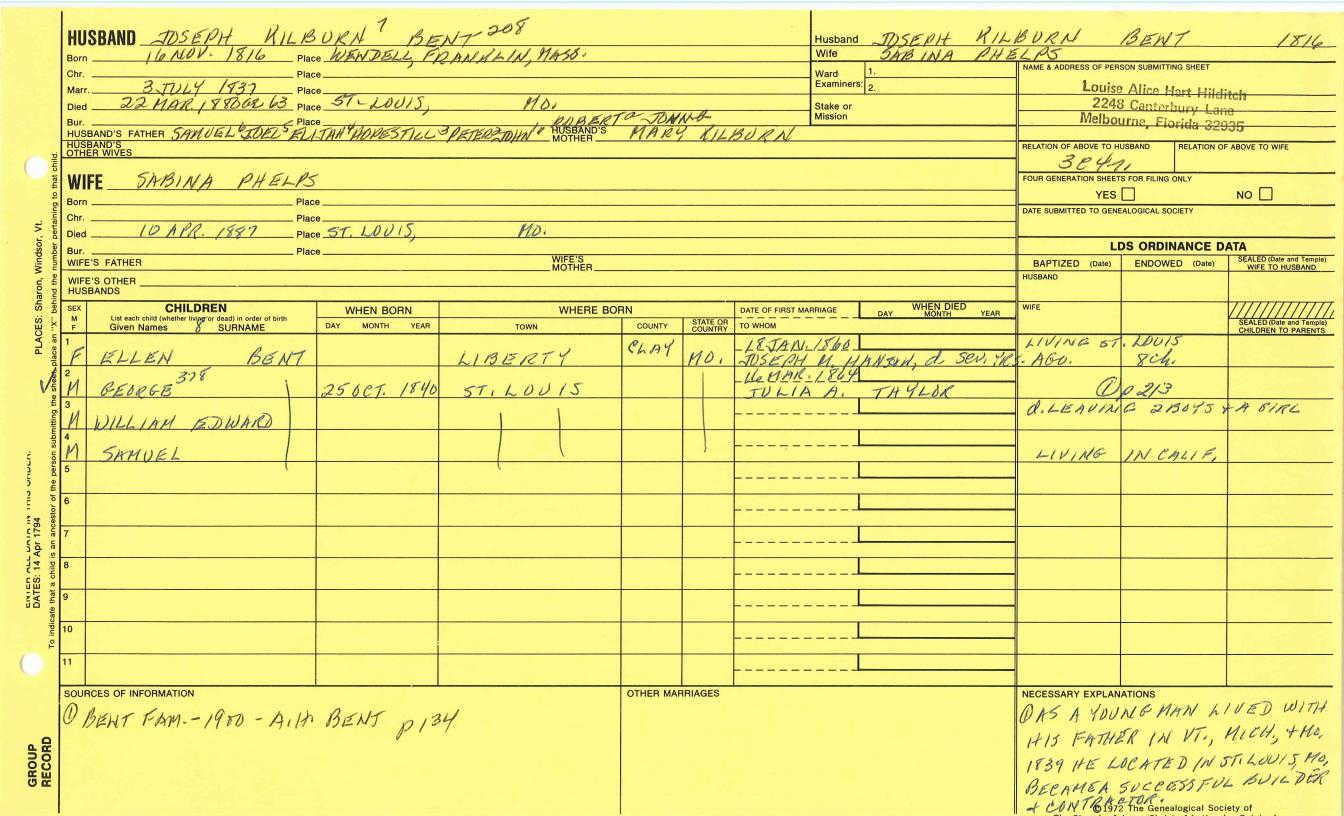 HUSBAND JOSEPH KILBURN 7 BENT 208
Born 16 NOV. 1816 Place WENDELL, FRANKLIN, MASS.
Chr. Place
Marr. 3 JULY 1837 Place
Died 22 MAR, 1880 OR 63 Place ST. LOUIS, MO.
Bur. Place
HUSBAND'S FATHER SAMUEL 6 JOEL 5 ELIJAH 4 HOPESTILL 3 PETER 2 JOHN ROBERT & JOHN HUSBAND'S MOTHER MARY KILBURN
HUSBAND'S OTHER WIVES
Husband JOSEPH KILBURN BENT 1816
Wife SABINA PHELPS
Ward Examiners: 1.
2.
Stake or Mission
NAME & ADDRESS OF PERSON SUBMITTING SHEET
Louise Alice Hart Hilditch
2248 Canterbury Lane
Melbourne, Florida 32935
RELATION OF ABOVE TO HUSBAND RELATION OF ABOVE TO WIFE
3C4r.
FOUR GENERATION SHEETS FOR FILING ONLY
YES NO
DATE SUBMITTED TO GENEALOGICAL SOCIETY
WIFE SABINA PHELPS
Born Place
Chr. Place
Died 10 APR. 1887 Place ST. LOUIS, MO.
Bur. Place
WIFE'S FATHER WIFE'S MOTHER
WIFE'S OTHER HUSBANDS
LDS ORDINANCE DATA
BAPTIZED (Date) ENDOWED (Date) SEALED (Date and Temple) WIFE TO HUSBAND
HUSBAND
WIFE
SEALED (Date and Temple) CHILDREN TO PARENTS
SEX M F
CHILDREN
List each child (whether living or dead) in order of birth
Given Names 8 SURNAME
WHEN BORN
DAY MONTH YEAR
WHERE BORN
TOWN COUNTY STATE OR COUNTRY
DATE OF FIRST MARRIAGE
TO WHOM
WHEN DIED
DAY MONTH YEAR
1 F ELLEN BENT LIBERTY CLAY MO. 18 JAN. 1860 LIVING ST. LOUIS
JOSEPH M. HANSON, d. SEV. YRS. AGO. 8 ch.
2 M GEORGE 378 25 OCT. 1840 ST. LOUIS 16 MAR. 1864
JULIA A. TAYLOR ① p 213
3 M WILLIAM EDWARD d. LEAVING 2 BOYS & A GIRL
4 M SAMUEL LIVING IN CALIF.
5
6
7
8
9
10
11
SOURCES OF INFORMATION
① BENT FAM. - 1900 - A.H. BENT p 134
OTHER MARRIAGES
NECESSARY EXPLANATIONS
① AS A YOUNG MAN LIVED WITH
HIS FATHER IN VT., MICH, & MO.
1839 HE LOCATED IN ST. LOUIS, MO,
BECAME A SUCCESSFUL BUILDER
& CONTRACTOR.
©1972 The Genealogical Society of
PLACES: Sharon, Windsor, Vt.
ENTER ALL DATA IN THIS ORDER:
DATES: 14 Apr 1794
To indicate that a child is an ancestor of the person submitting the sheet, place an "X" behind the number pertaining to that child.
GROUP RECORD